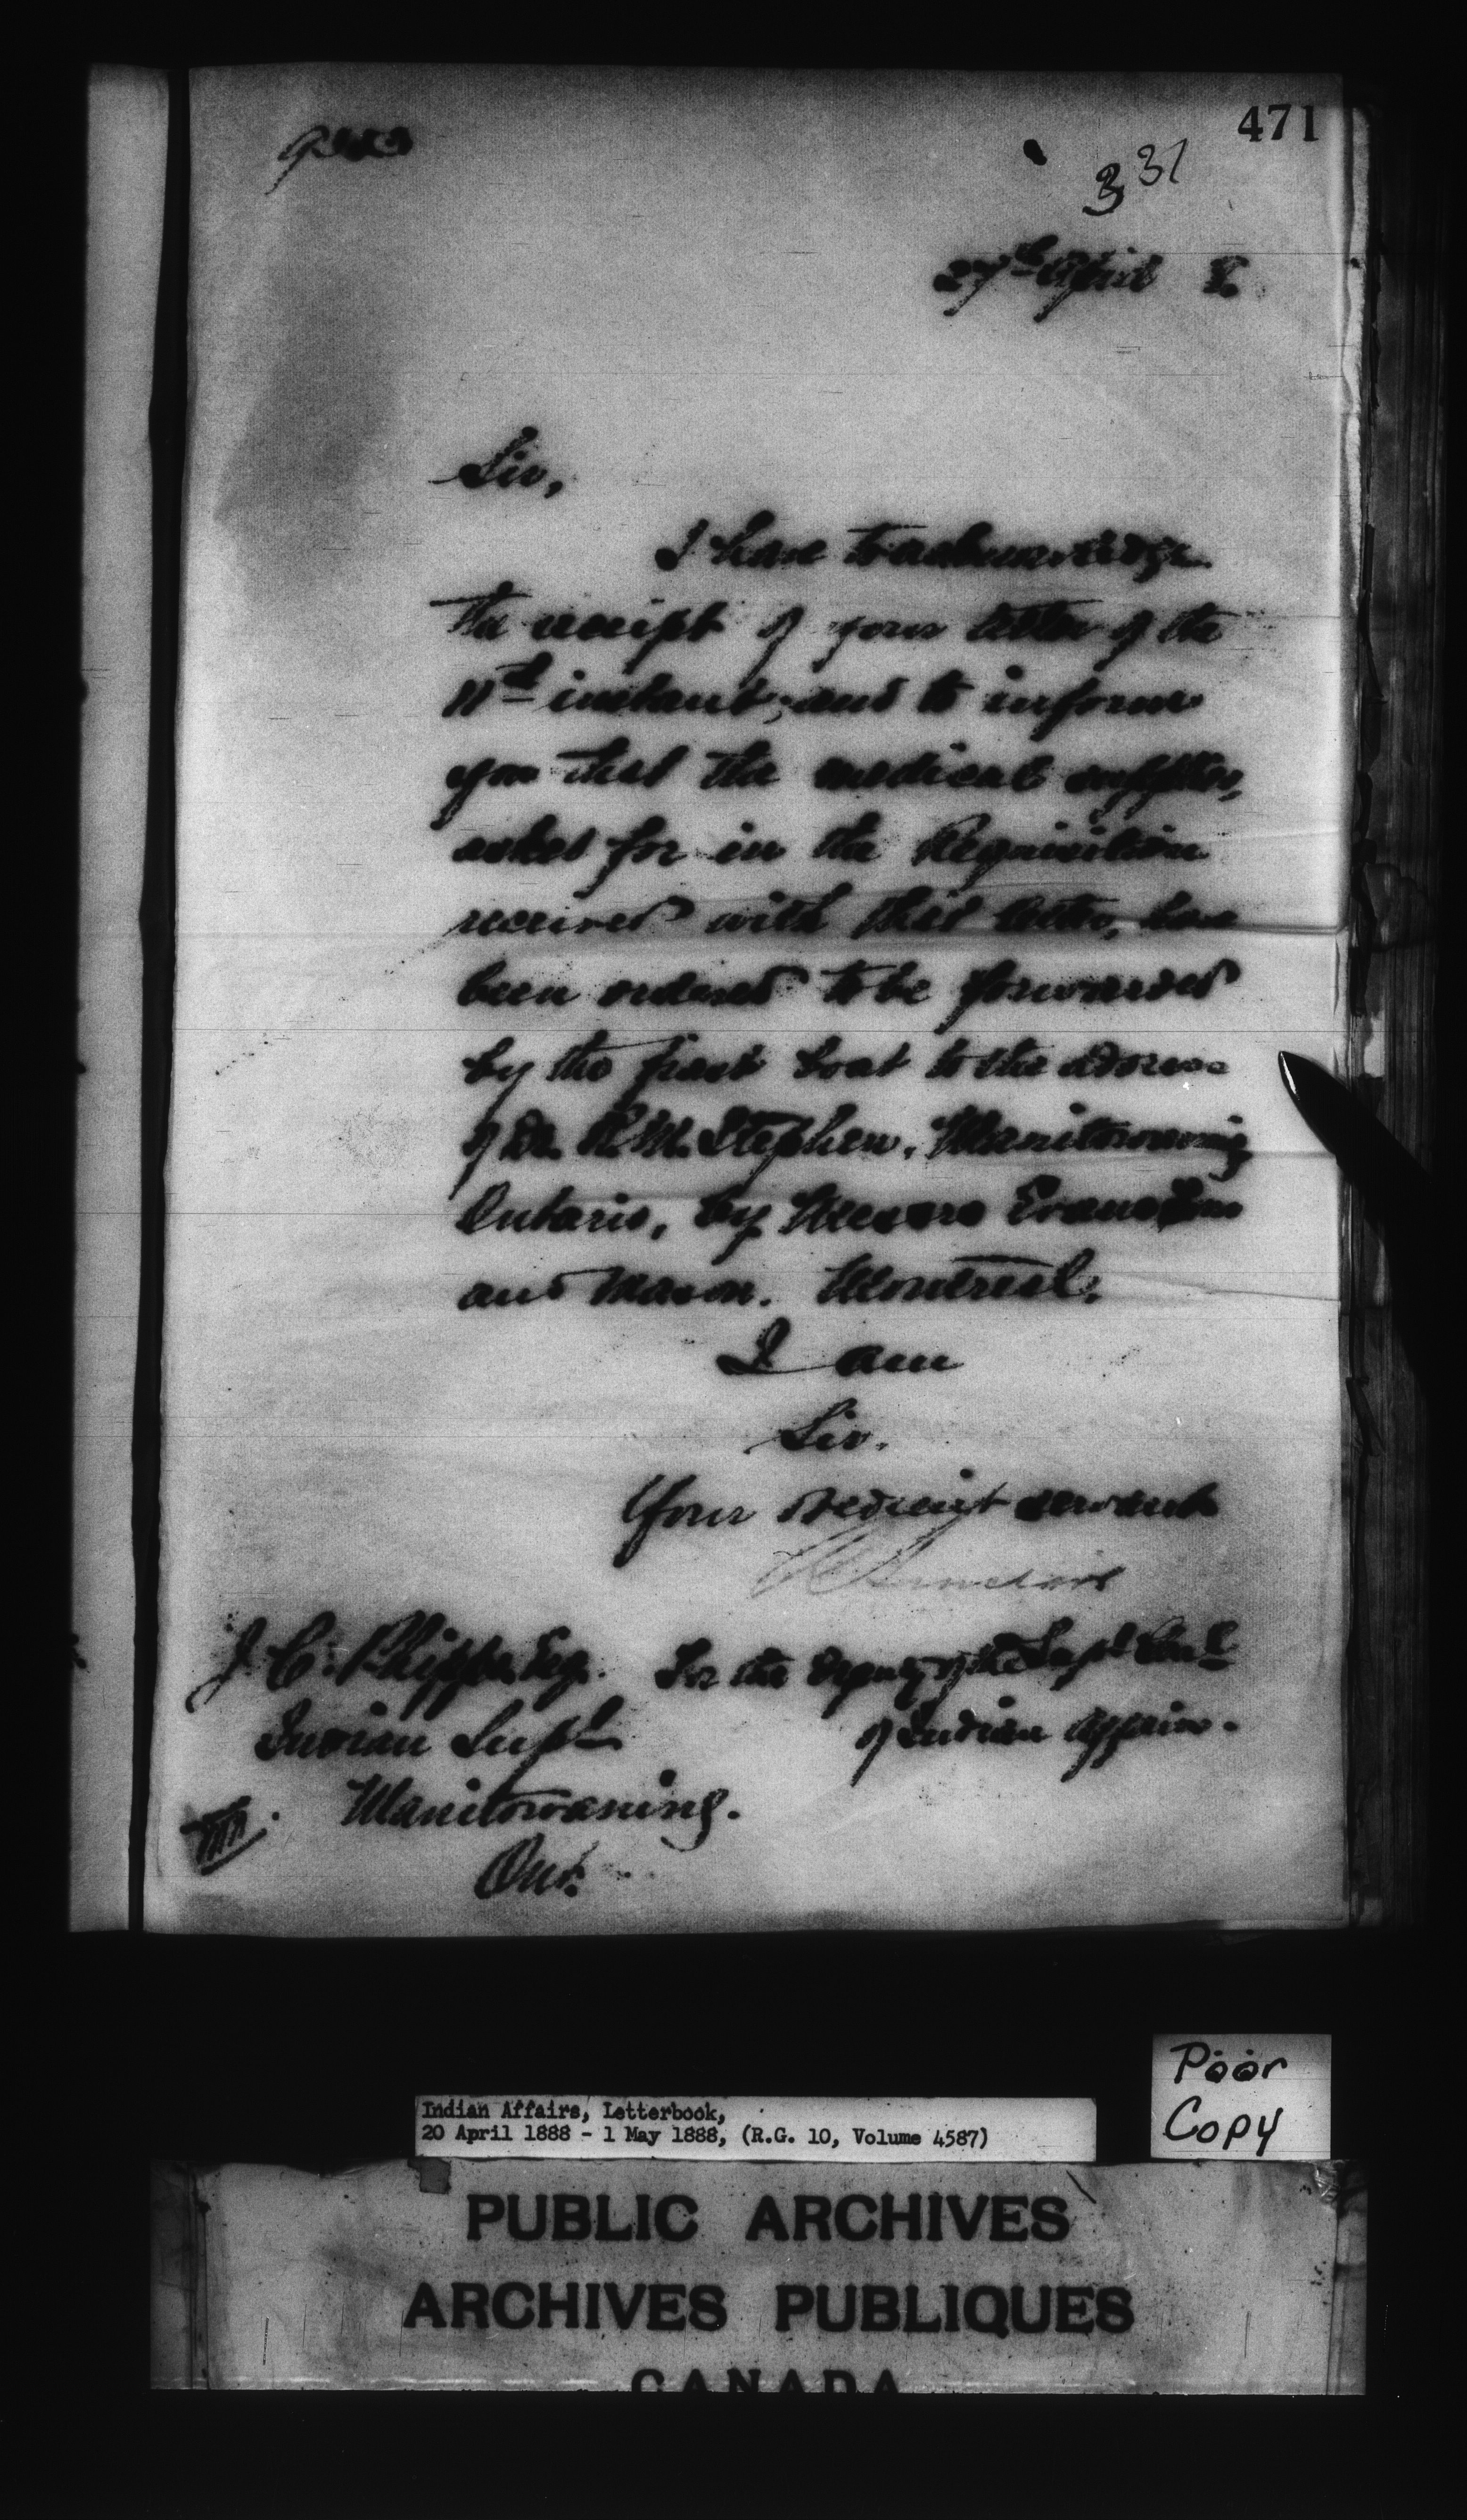 471
331
27th April 8.
Sir,
I have to acknowledge
the receipt of your letter of the
11th instant, and to inform
you that the medical supplies,
asked for in the Requisition
received with that letter, have
been ordered to be forwarded
by the first boat to the address
of Dr. R.M. Stephen, Manitowaning
Ontario, by Messrs Evans Sons
and Mason. Montreal.
I am
Sir.
Your obedient servant
J. C. Phipps Esq. For the Deputy of the Supt Genl
Indian Supt of Indian Affairs.
Manitowaning.
Ont.
Poor
Copy
Indian Affairs, Letterbook,
20 April 1888 - 1 May 1888, (R.G. 10, Volume 4587)
PUBLIC ARCHIVES
ARCHIVES PUBLIQUES
CANADA